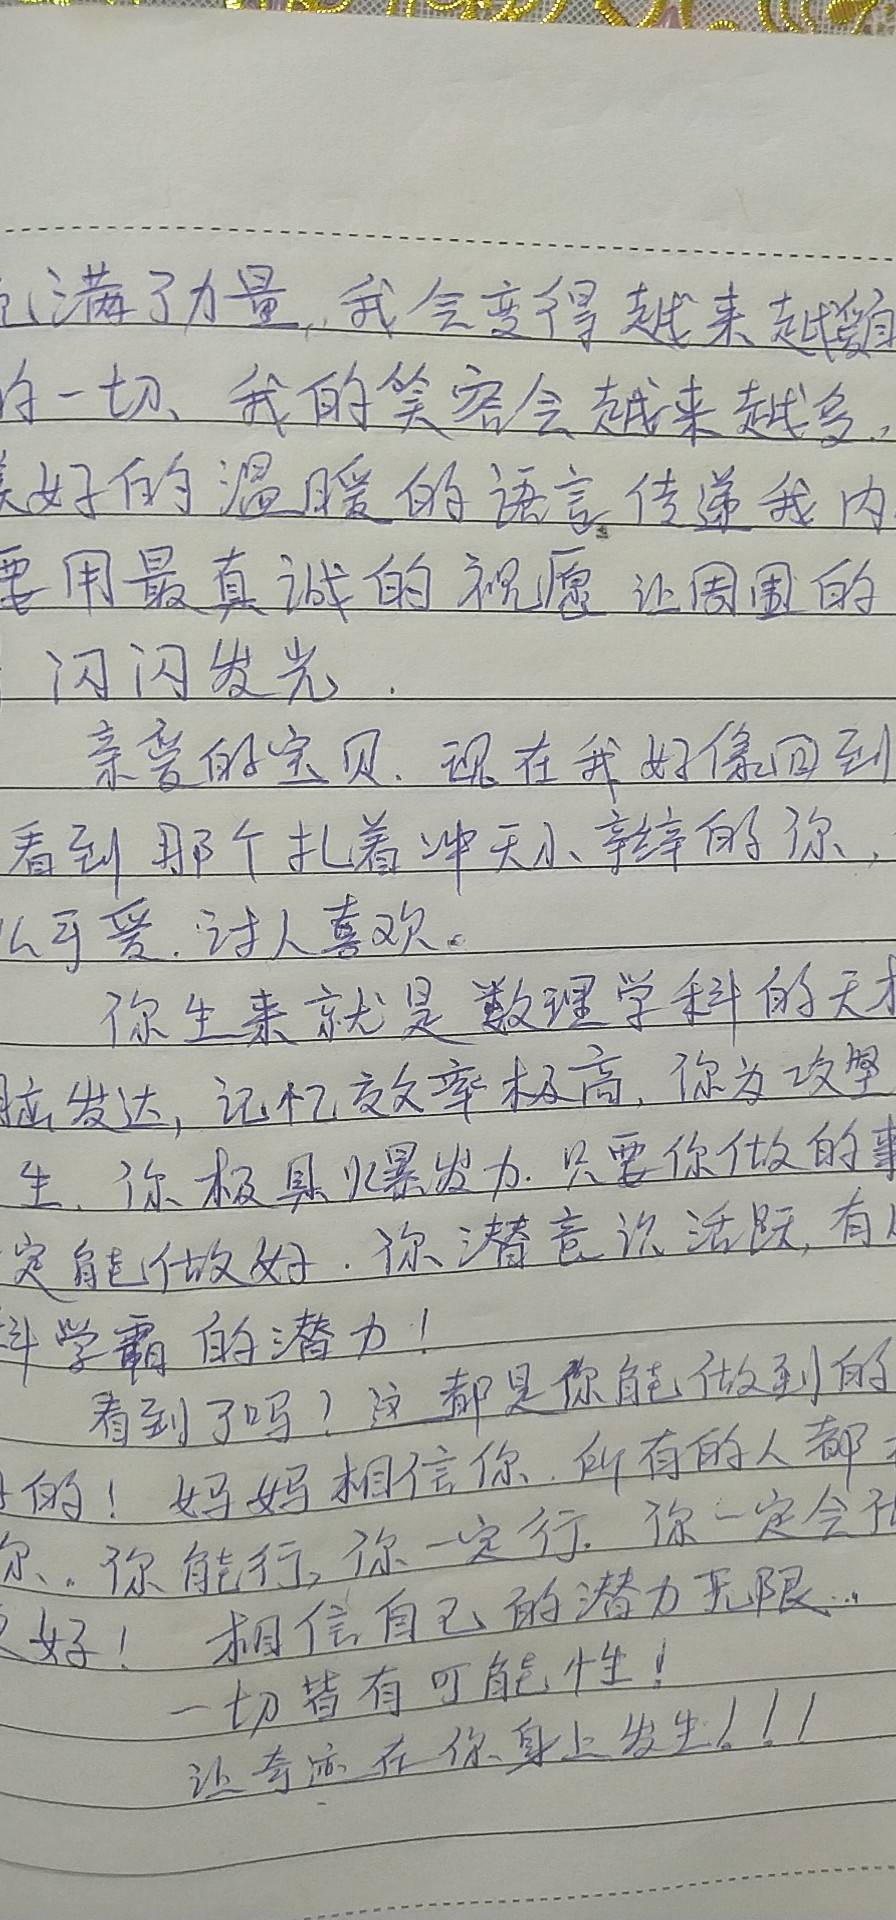 满了力量,我会变得越来越
的一切、我的笑容会越来越多,
好的温暖的语言传递我内
要用最真诚的祝愿 让周围的
闪闪发光.
亲爱的宝贝.现在我好像回到
看到那个扎着冲天小辫的你,
么可爱.讨人喜欢。
你生来就是数理学科的天才
脑发达,记忆效率极高,你为攻坚
生、你极具爆发力.只要你做的事
定能做好.你潜意识活跃,有
科学霸的潜力!
看到了吗?这都是你能做到的
的!妈妈相信你.所有的人都
你..你能行,你一定行.你一定会
好!相信自己的潜力无限...
一切皆有可能性!
让奇迹在你身上发生!!!